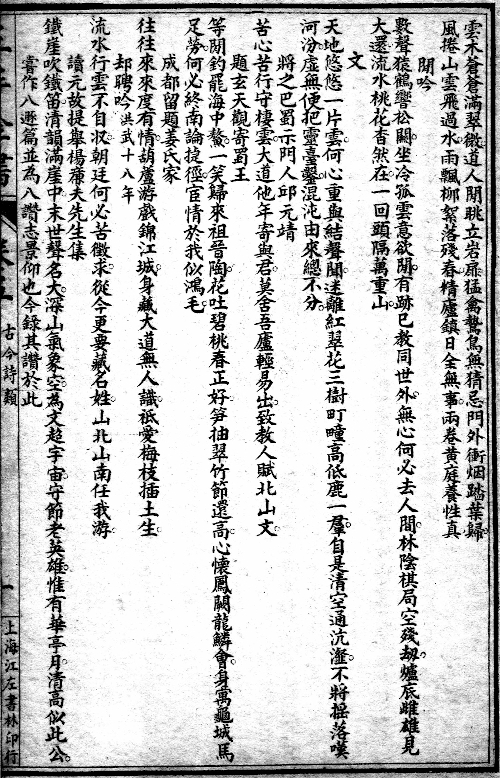 雲木蒼蒼滿翠微道人閒眺立岩扉猛禽鷙鳥無猜忌門外衝烟踏葉歸
風捲山雲飛過水雨飄柳絮落殘春精廬鎮日全無事兩卷黃庭養性真
閒吟
數聲猿鶴響松關坐冷孤雲意欲閒有跡已教同世外無心何必去人間林陰棋局空殘刼爐底雌雄見
大還流水桃花杳然在一回頭隔萬重山
文
天地悠悠一片雲何心重與結聲聞迷離紅翠花三樹町疃高低鹿一羣自是清空通沆瀣不將搖落嘆
河汾虛無便把靈臺鑿混沌由來總不分
將之巴蜀示門人邱元靖
苦心苦行守棲雲大道他年寄與君莫舍吾廬輕易出致教人賦北山文
題玄天觀寄蜀王
等閒釣罷海中鰲一笑歸來祖晉陶花吐碧桃春正好筍抽翠竹節還高心懷鳳闕龍鱗會身寓龜城馬
足勞何必終南論捷徑宦情於我似鴻毛
成都留題姜氏家
往往來來度有情葫蘆游戲錦江城身藏大道無人識祗愛梅枝插土生
却聘吟洪武十八年
流水行雲不自收朝廷何必苦徵求從今更要藏名姓山北山南任我游
讀元故提舉楊廉夫先生集
鐵崖吹鐵笛清韻滿崖中末世聲名大深山氣象空為文超宇宙守節老英雄惟有華亭月清高似此公
嘗作八遯篇並為八讚志景仰也今錄其讚於此
古今詩類
一
上海江左書林印行